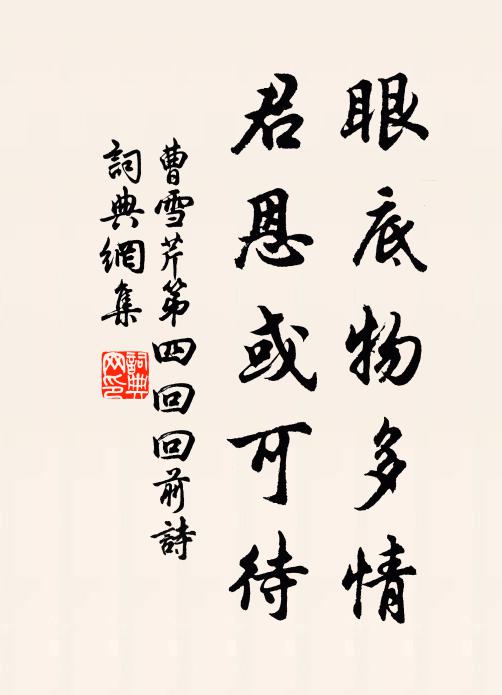 眼底物多情
君恩或可待
曹雪芹第四回回前詩
詞典網集
詞典
网印